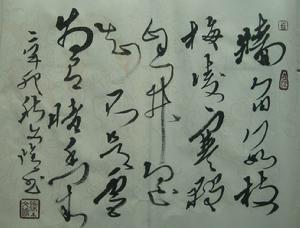 墙角数枝
梅凌寒独
自开遥
知不是雪
为有暗香来
辛卯秋